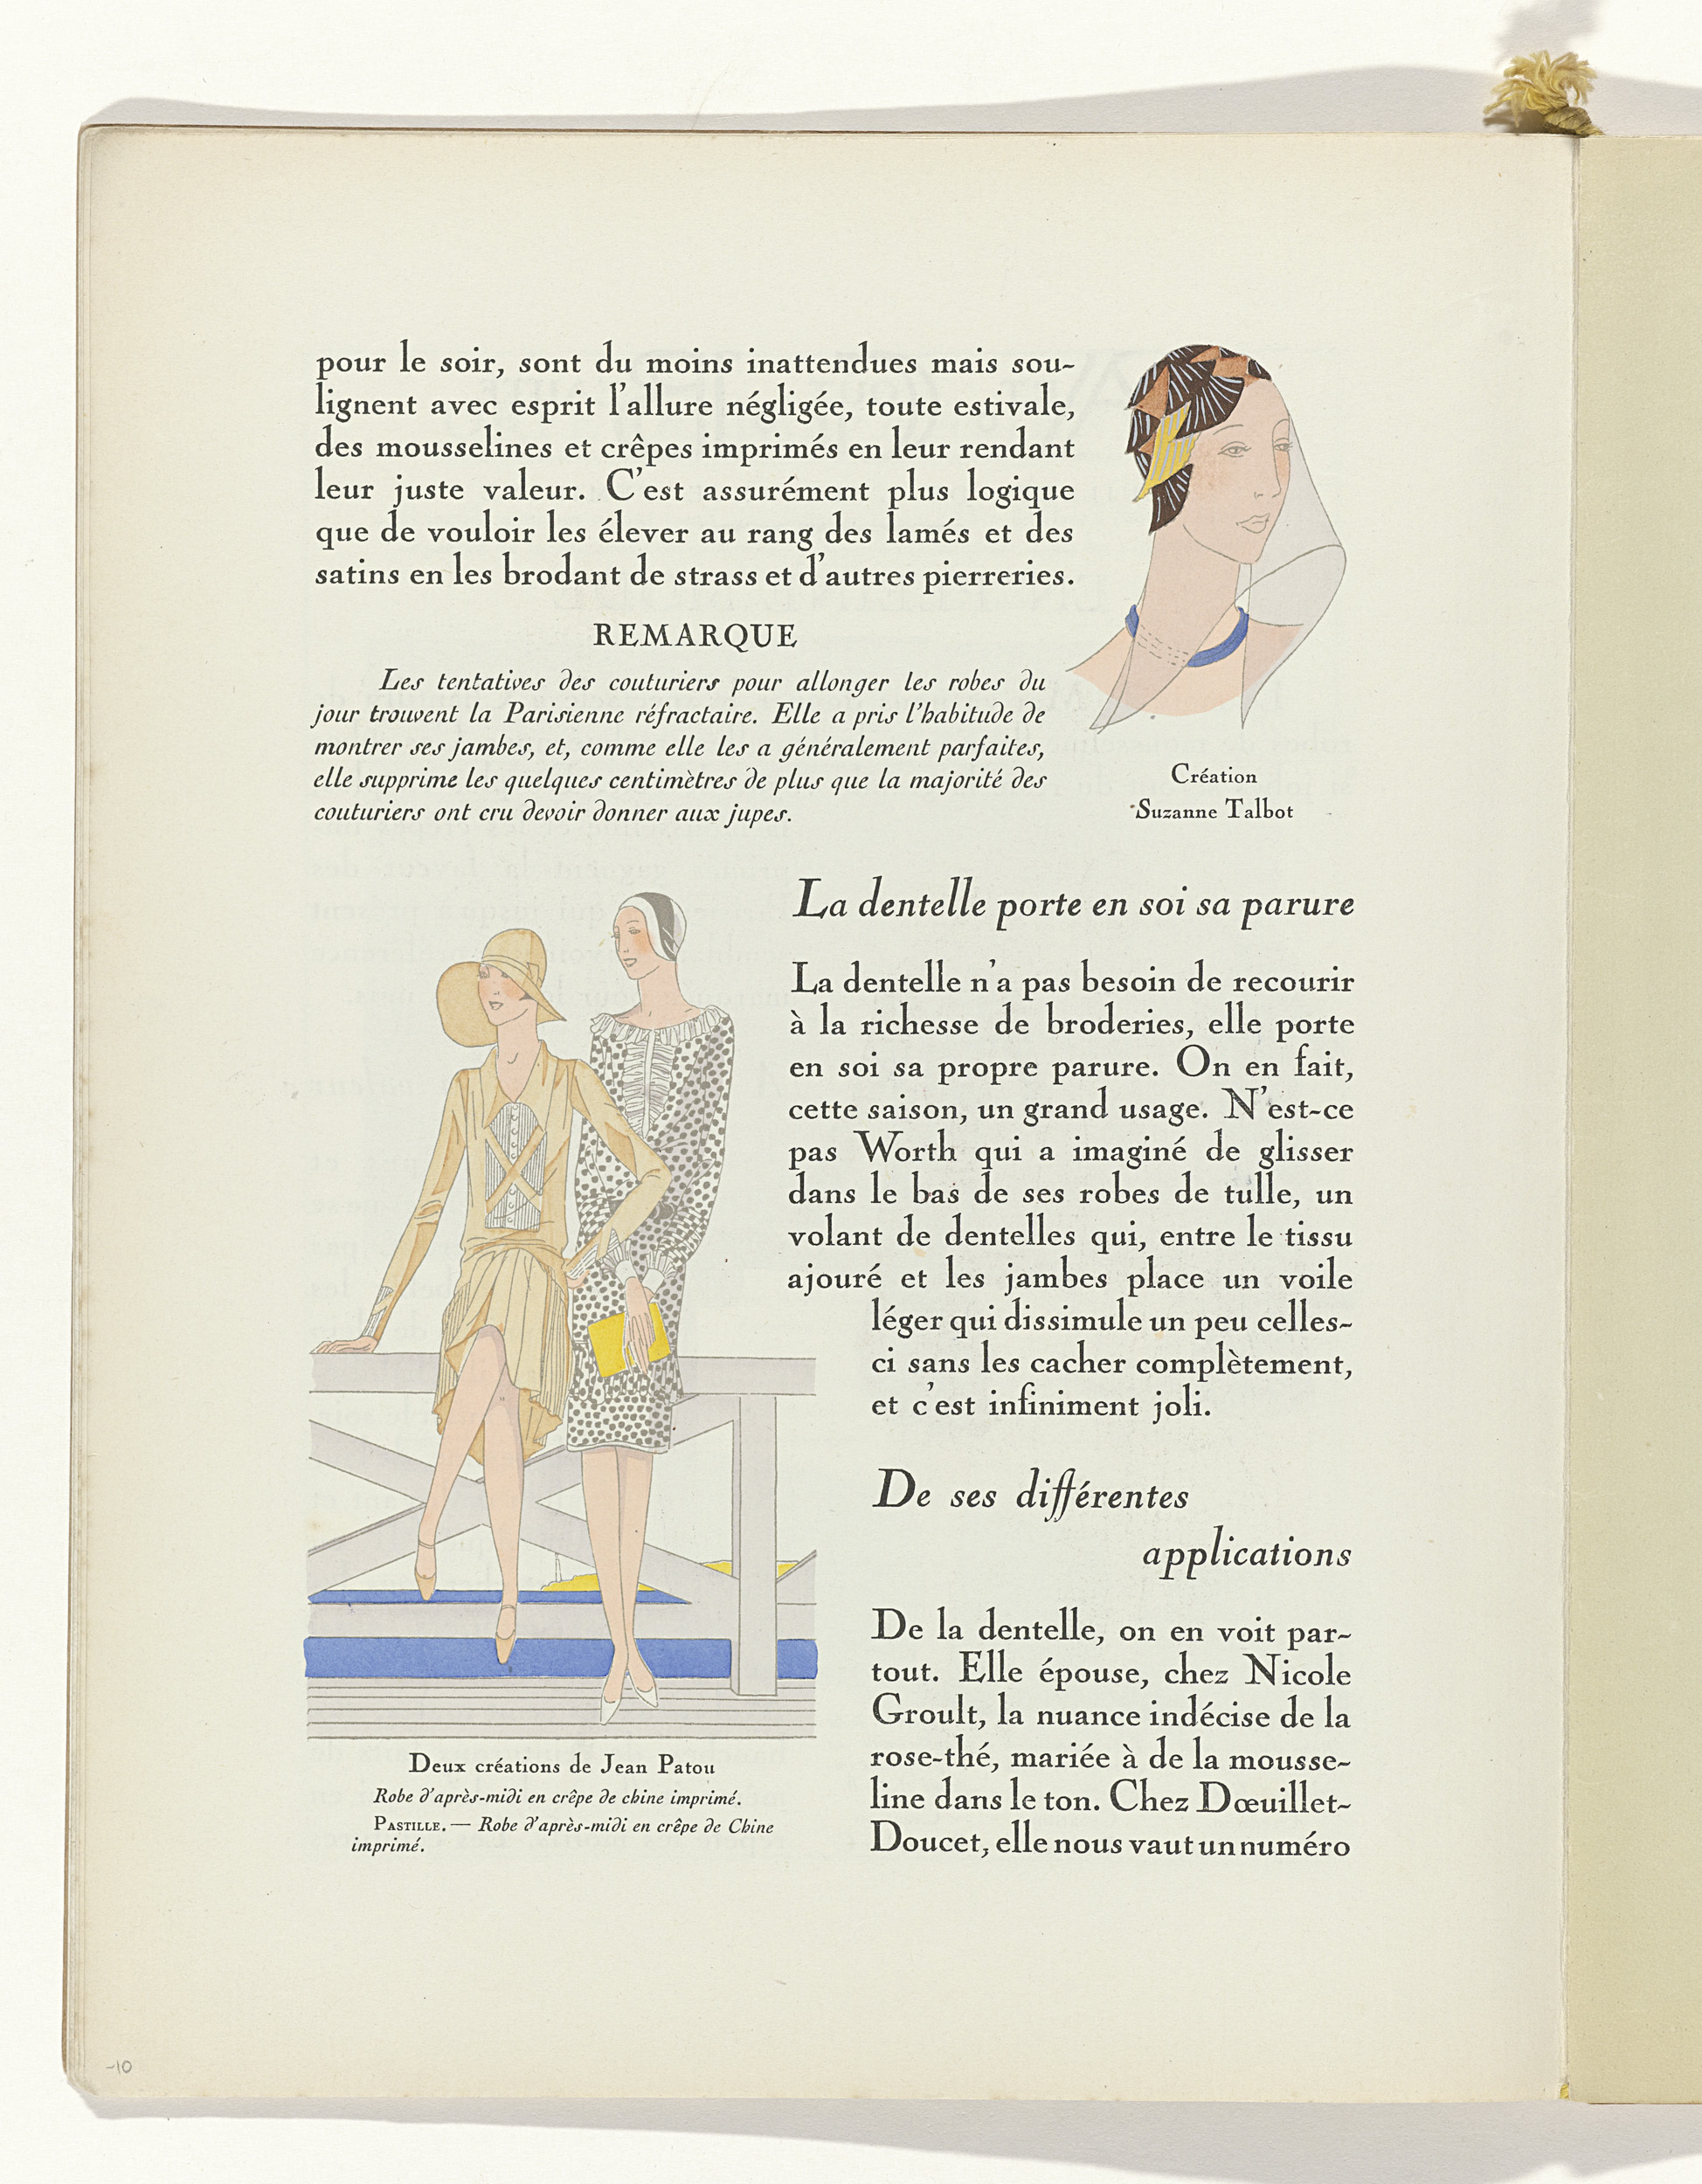 pour le soir, sont du moins inattendues mais sou-
lignent avec esprit l'allure négligée, toute estivale,
des mousselines et crêpes imprimés en leur rendant
leur juste valeur. C'est assurément plus logique
que de vouloir les élever au rang des lamés et des
satins en les brodant de strass et d'autres pierreries.
REMARQUE
Les tentatives des couturiers pour allonger les robes du
jour trouvent la Parisienne réfractaire. Elle a pris l'habitude de
montrer ses jambes, et, comme elle les a généralement parfaites,
elle supprime les quelques centimètres de plus que la majorité des
couturiers ont cru devoir donner aux jupes.
Création
Suzanne Talbot
La dentelle porte en soi sa parure
La dentelle n'a pas besoin de recourir
à la richesse de broderies, elle porte
en soi sa propre parure. On en fait,
cette saison, un grand usage. N'est-ce
pas Worth qui a imaginé de glisser
dans le bas de ses robes de tulle, un
volant de dentelles qui, entre le tissu
ajouré et les jambes place un voile
léger qui dissimule un peu celles-
ci sans les cacher complètement,
et c'est infiniment joli.
De ses différentes
applications
De la dentelle, on en voit par-
tout. Elle épouse, chez Nicole
Groult, la nuance indécise de la
rose-thé, mariée à de la mousse-
line dans le ton. Chez Dœuillet-
Doucet, elle nous vaut un numéro
Deux créations de Jean Patou
Robe d'après-midi en crêpe de chine imprimé.
PASTILLE. — Robe d'après-midi en crêpe de Chine
imprimé.
-10